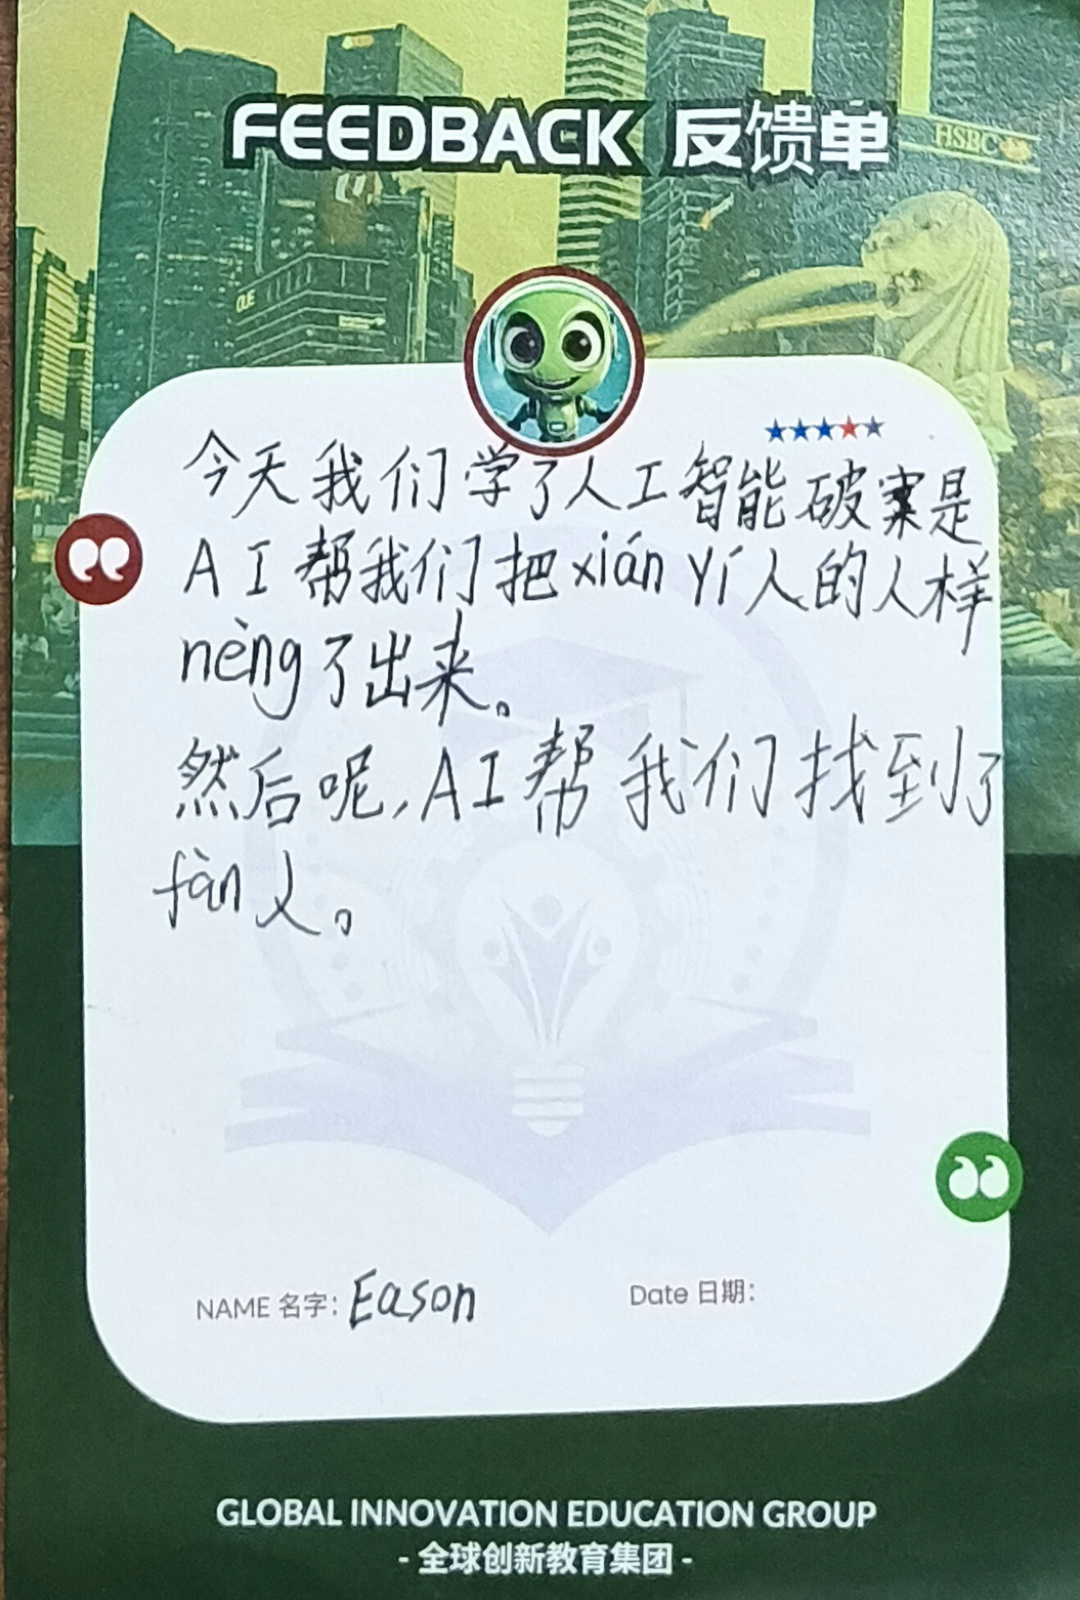 FEEDBACK 反馈单
HSBC
CUE
今天我们学了人工智能破案是
AI帮我们把xián yí人的人样
nèng了出来。
然后呢,AI帮我们找到了
fàn人。
NAME 名字: Eason
Date 日期:
GLOBAL INNOVATION EDUCATION GROUP
- 全球创新教育集团 -